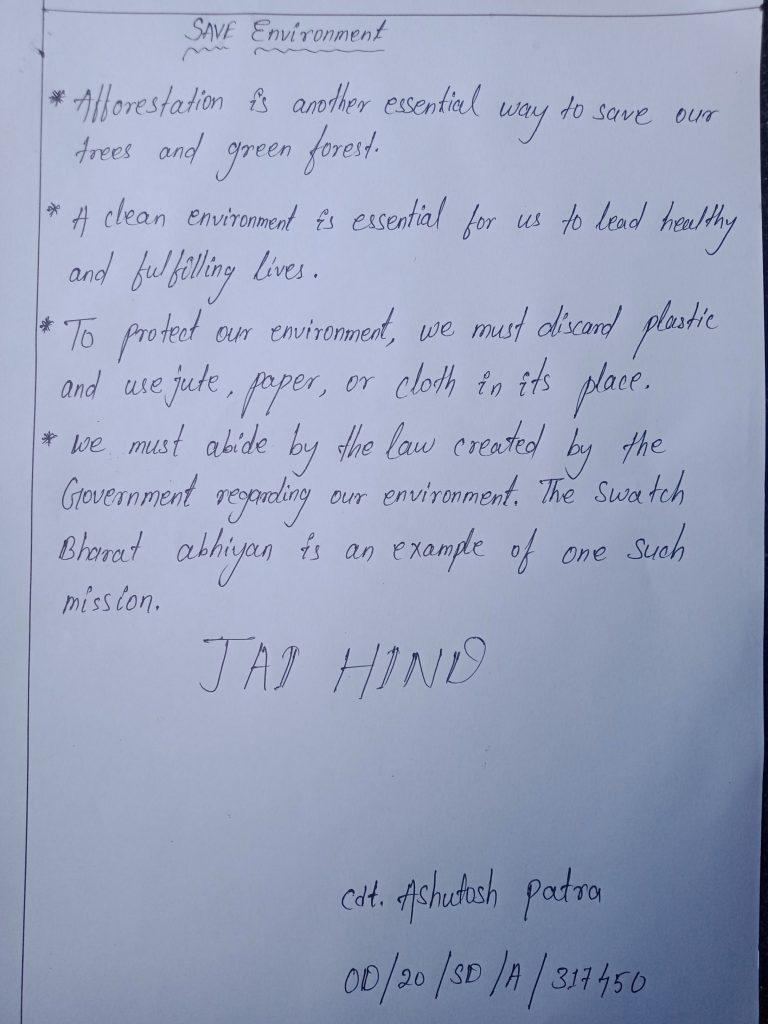 SAVE Environment
* Afforestation is another essential way to save our
trees and green forest.
* A clean environment is essential for us to lead healthy
and fulfilling lives.
* To protect our environment, we must discard plastic
and use jute, paper, or cloth in its place.
* we must abide by the law created by the
Government regarding our environment. The Swatch
Bharat abhiyan is an example of one such
mission.
JAI HIND
Cdt. Ashutosh Patra
OD/20/SD/A/317450